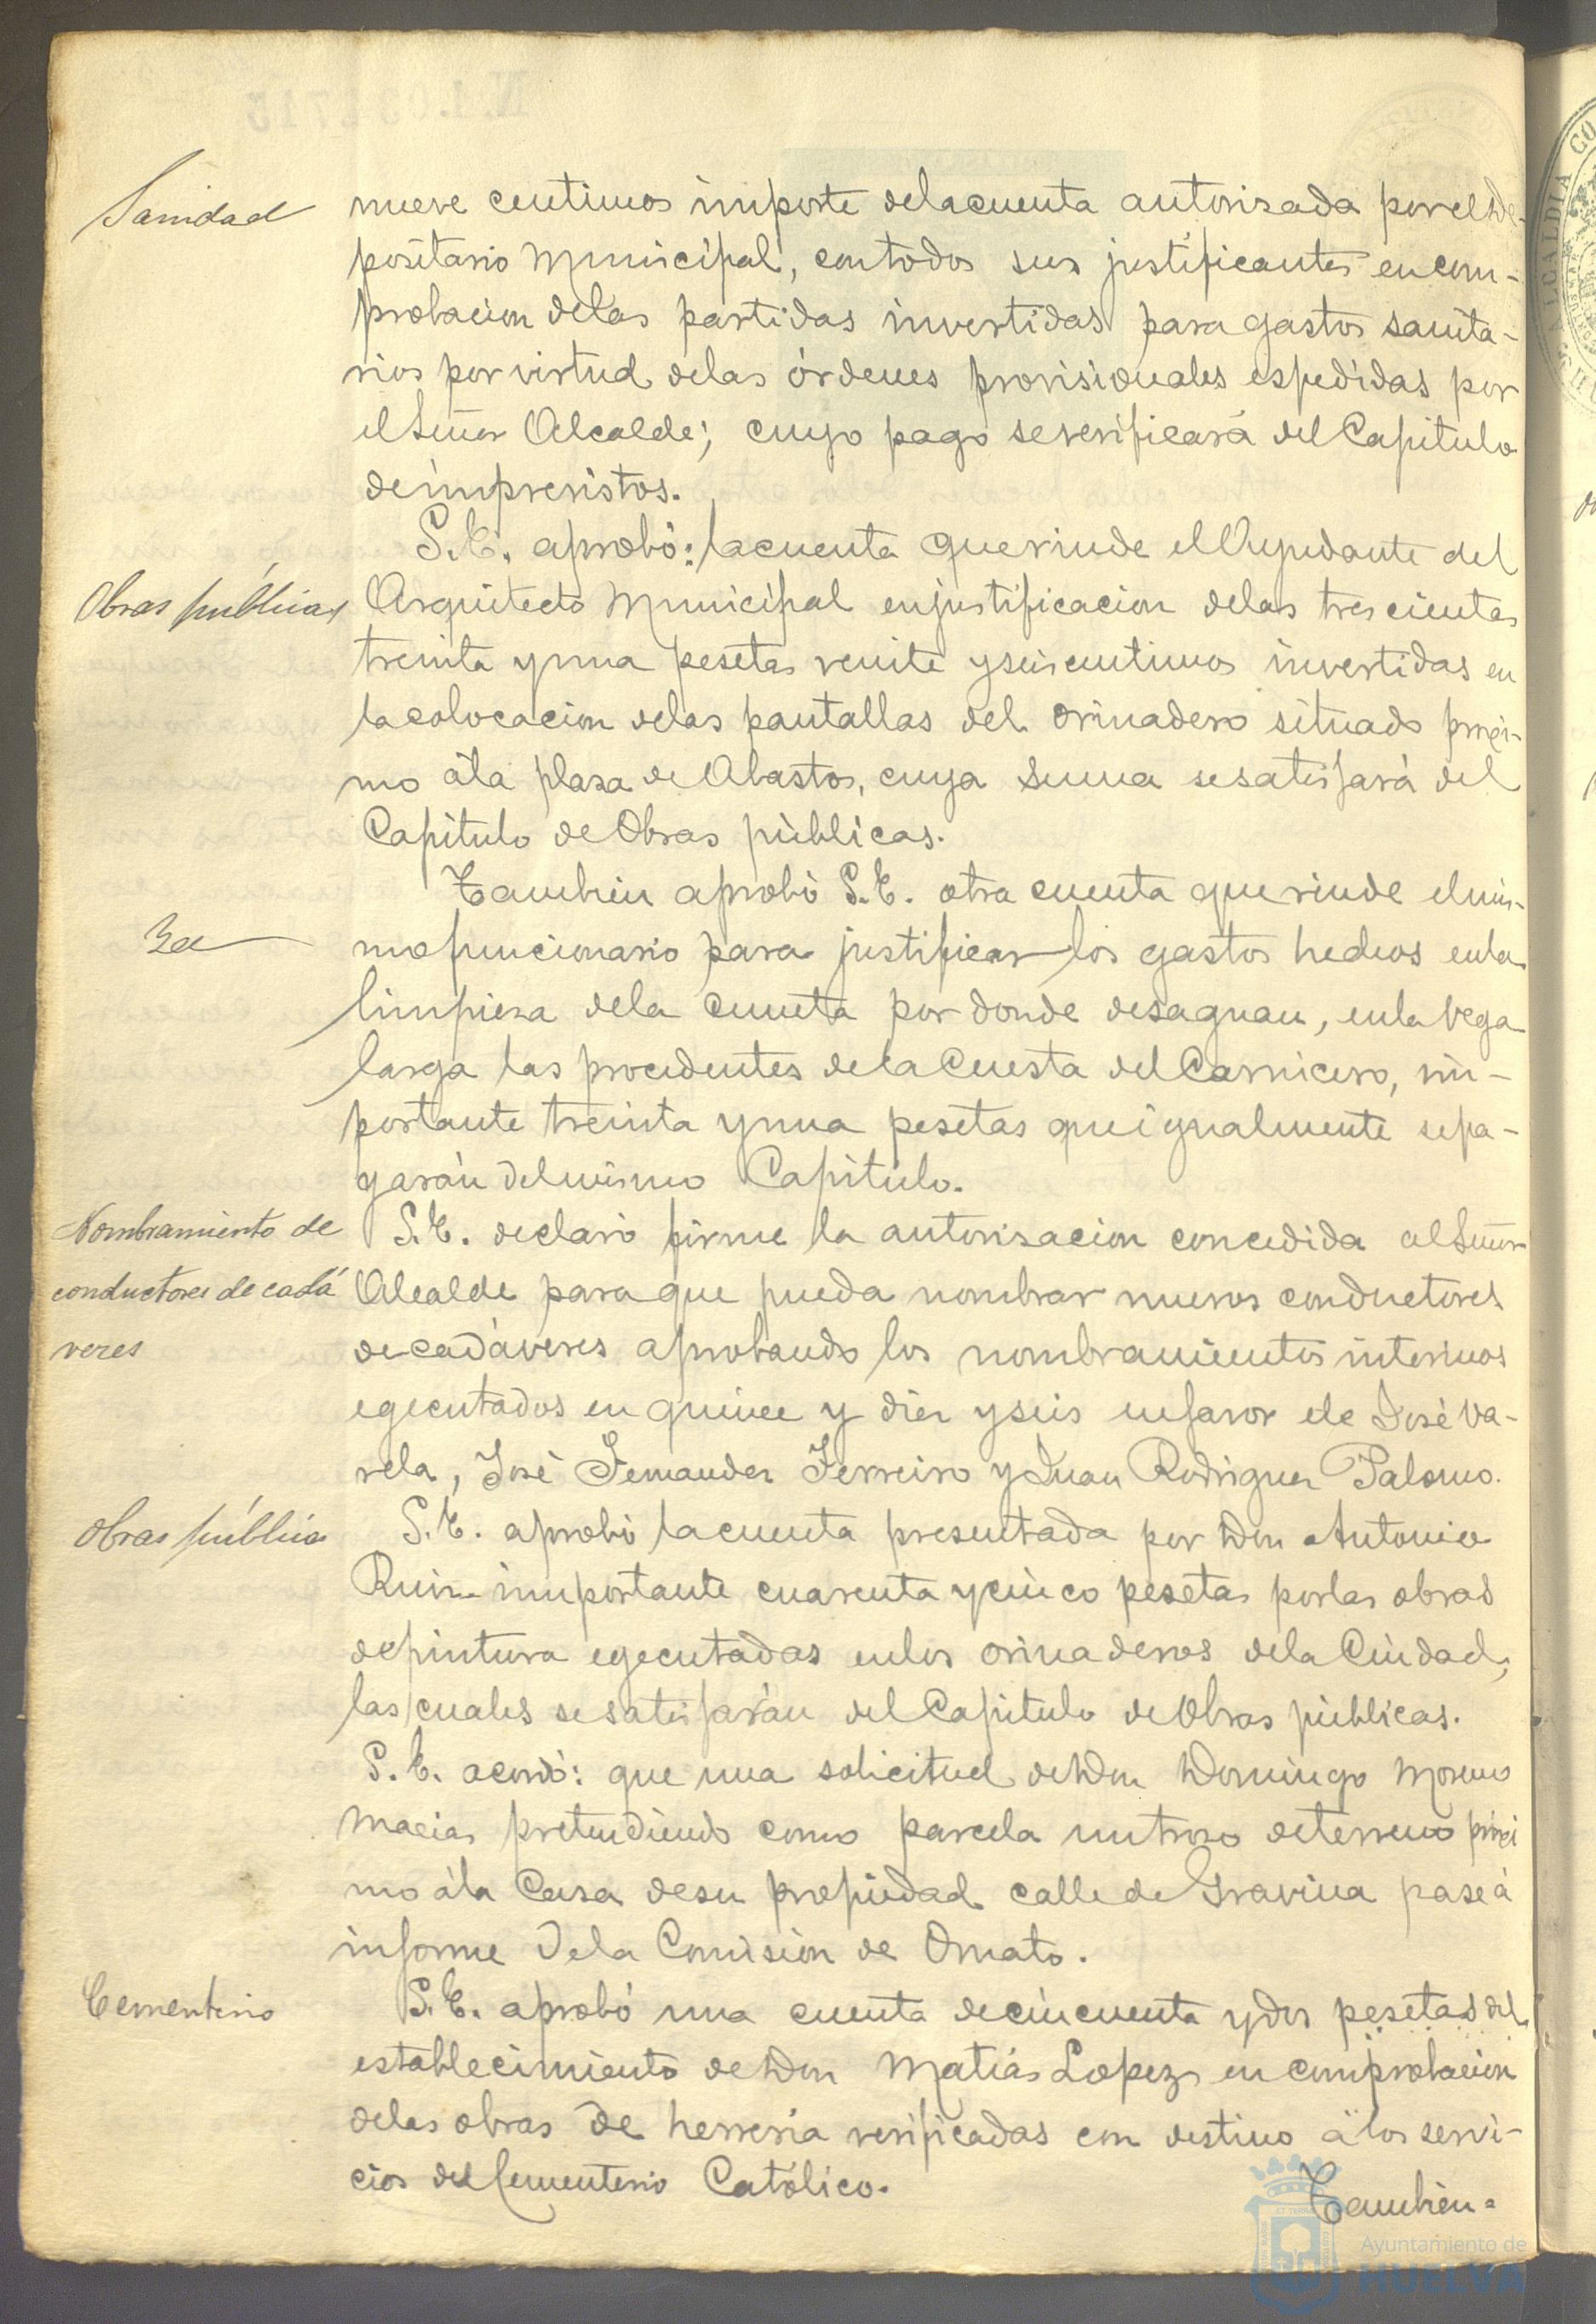 Sanidad
nueve centimos importe dela cuenta autorisada por el De-
positario Municipal, con todos sus justificantes en com-
probacion delas partidas invertidas para gastos sanita-
rios por virtud delas órdenes provisionales espedidas por
el Señor Alcalde; cuyo pago se verificará del Capitulo
de imprevistos.
S. E. aprobó: la cuenta que rinde el Ayudante del
Obras públicas
Arquitecto Municipal en justificacion delas trescientas
treinta y una pesetas veinte y seis centimos invertidas en
la colocacion delas pantallas del orinadero situado proxi-
mo á la plasa de Abastos, cuya suma se satisfará del
Capitulo de Obras públicas.
Tambien aprobó S. E. otra cuenta que rinde el mis-
mo funcionario para justificar los gastos hechos en la
limpiesa dela cuneta por donde desaguan, en la Vega
larga las procedentes de la Cuesta del Carnicero, im-
portante treinta y una pesetas que igualmente se pa-
garán del mismo Capitulo.
Nombramiento de
conductores de cadá
veres
S. E. declaró firme la autorisacion concedida al Señor
Alcalde para que pueda nombrar nuevos conductores
de cadáveres aprobando los nombramientos interinos
egecutados en quince y diez y seis en favor de José Va-
rela, José Fernandez Ferreiro y Juan Rodriguez Palomo.
Obras públicas
S. E. aprobó la cuenta presentada por Don Antonio
Ruiz importante cuarenta y cinco pesetas por las obras
de pintura egecutadas en los orinaderos dela Ciudad,
las cuales se satisfarán del Capitulo de Obras públicas.
S. E. acordó: que una solicitud de Don Domingo Moreno
Macias pretendiendo como parcela un troso de terreno próxi
mo á la Casa de su propiedad calle de Gravina pase á
informe de la Comision de Ornato.
Cementerio
S. E. aprobó una cuenta de cincuenta y dos pesetas del
establecimiento de Don Matias Lopez en comprobacion
delas obras de herreria verificadas con destino á los servi-
cios del Cementerio Católico.
Tambien
Ayuntamiento de
HUELVA